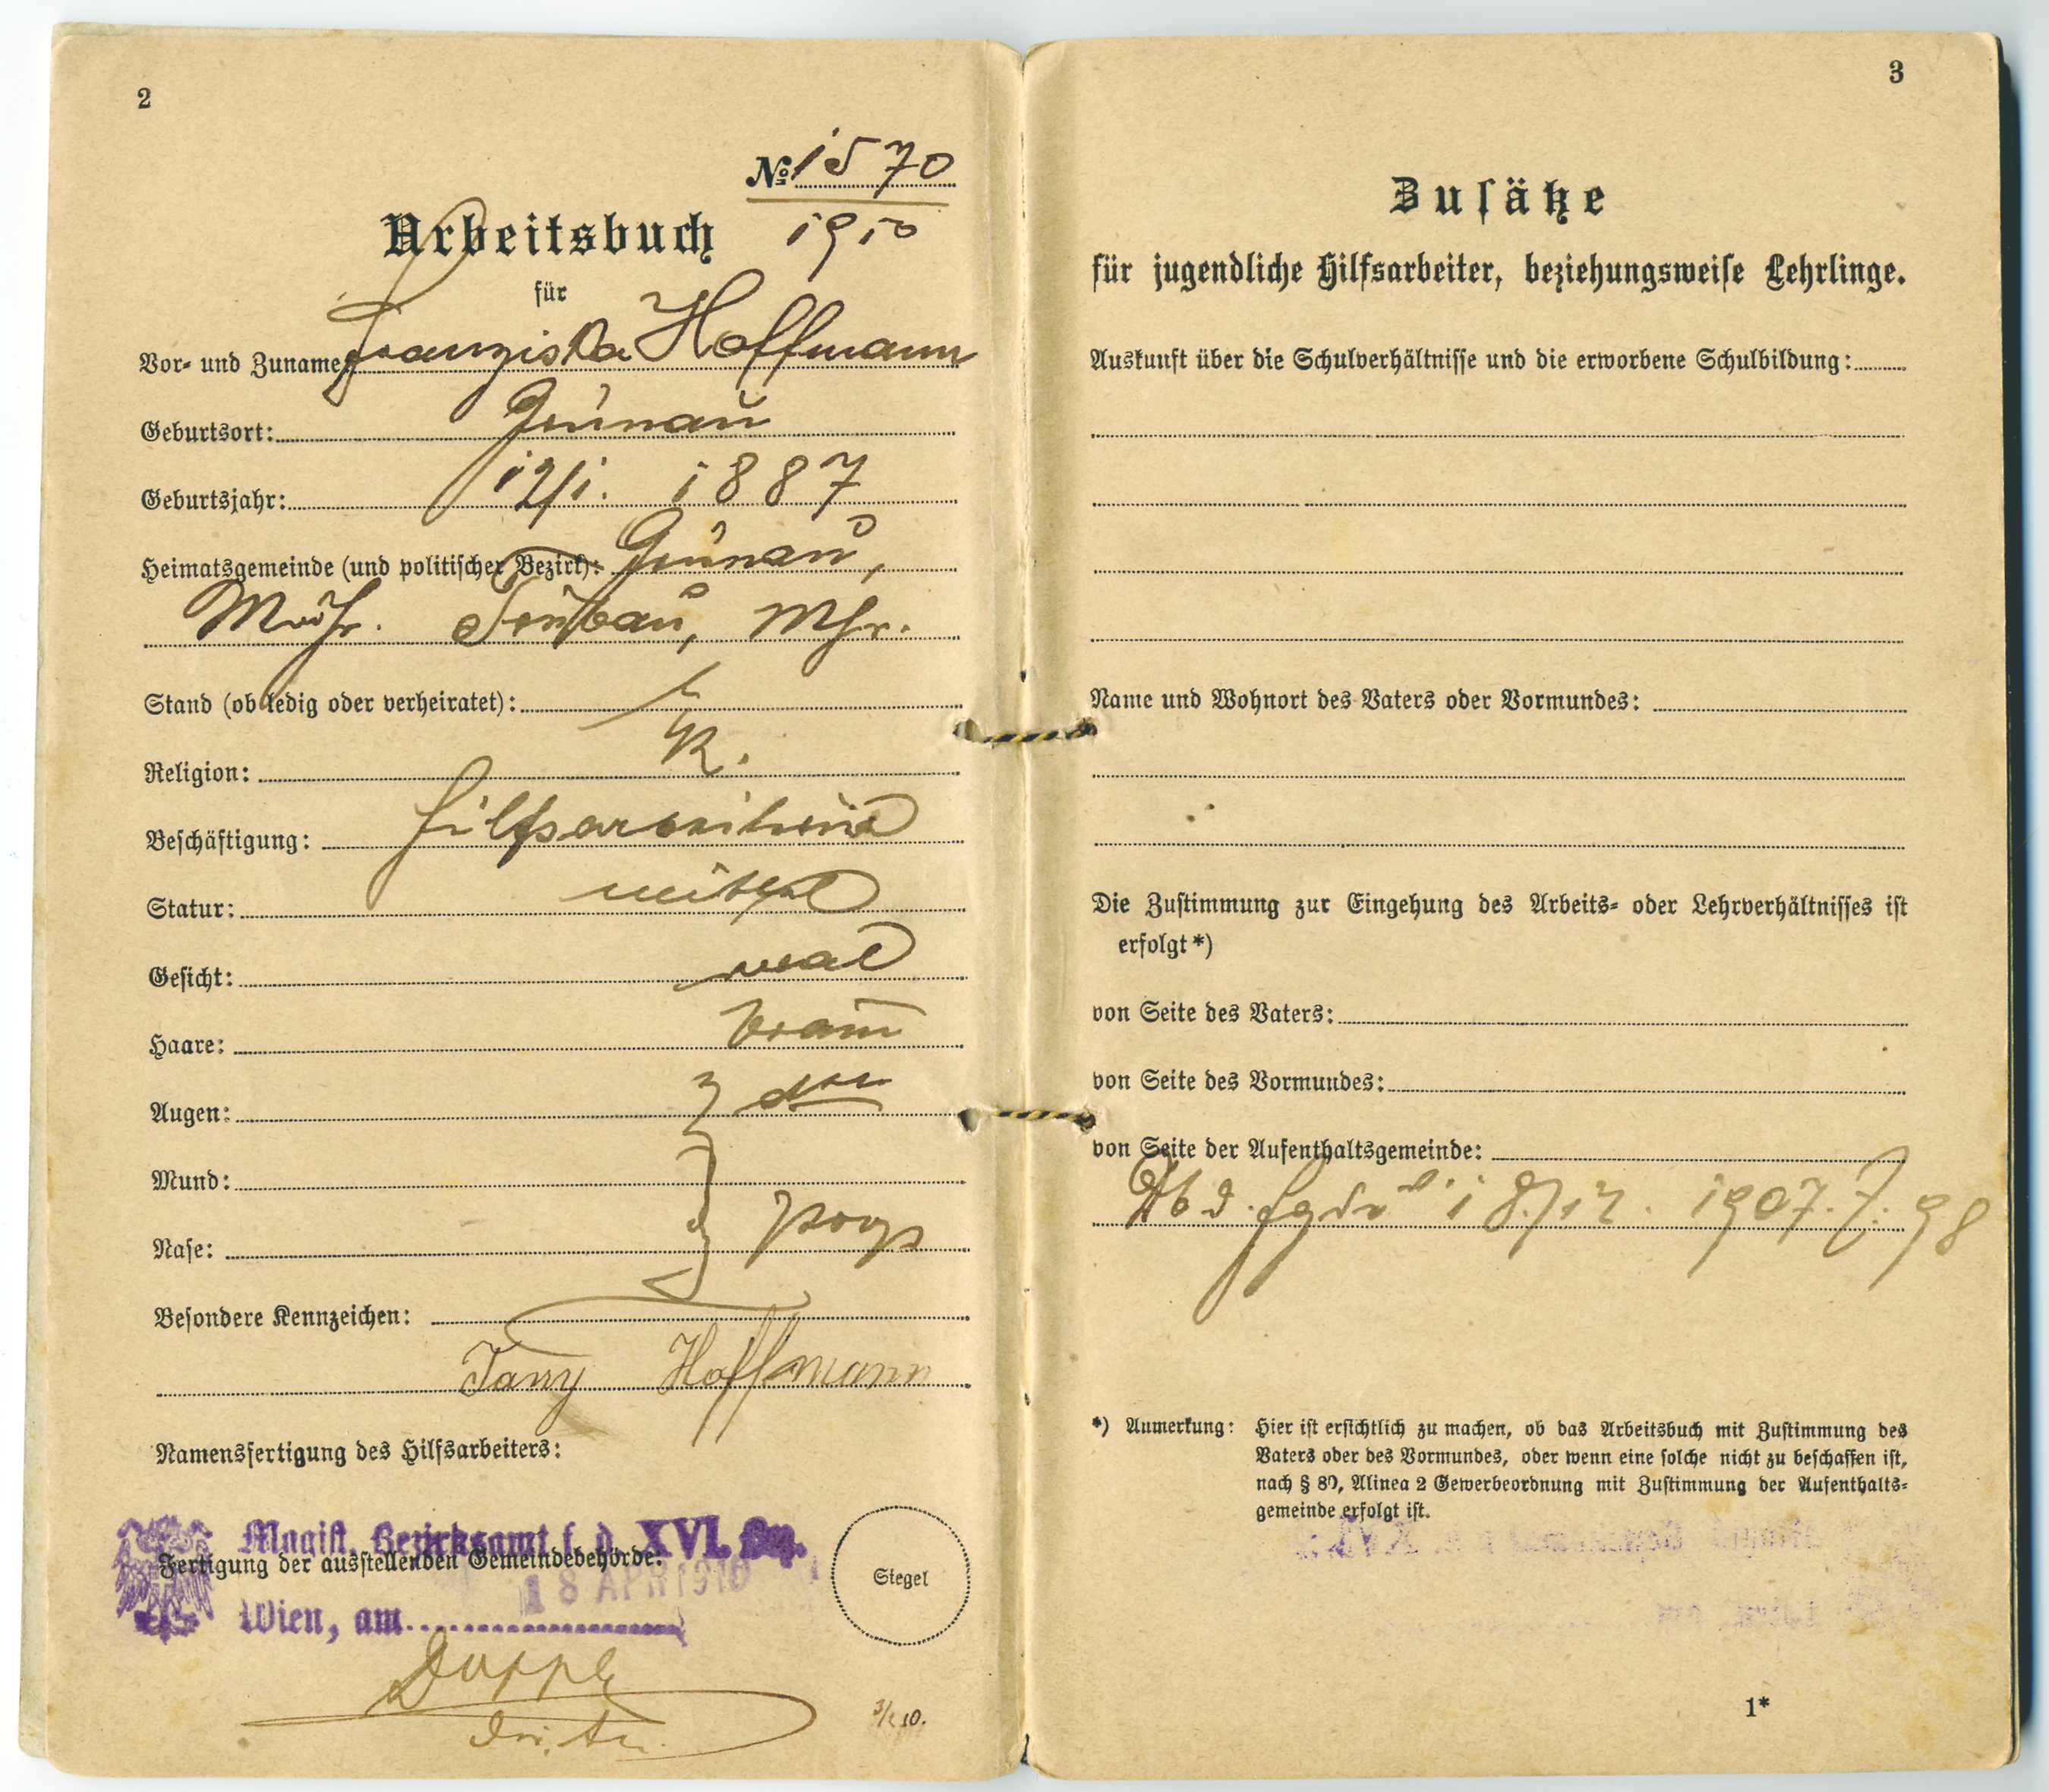 2
№ 1570
1910
Arbeitsbuch
für
Vor- und Zuname: Franziska Hoffmann
Geburtsort: Grünau
Geburtsjahr: 12/1. 1887
Heimatsgemeinde (und politischer Bezirk): Grünau,
Mähr. Trübau, Mhr.
Stand (ob ledig oder verheiratet): l
Religion: k.
Beschäftigung: Hilfsarbeiterin
Statur: mittel
Gesicht: oval
Haare: braun
Augen: dto
Mund:
Nase: prop
Besondere Kennzeichen:
Fany Hoffmann
Namensfertigung des Hilfsarbeiters:
Magist. Bezirksamt f. d. XVI. Bez.
Fertigung der ausstellenden Gemeindebehörde:
18 APR 1910
Wien, am
Siegel
3
Zusätze
für jugendliche Hilfsarbeiter, beziehungsweise Lehrlinge.
Auskunft über die Schulverhältnisse und die erworbene Schulbildung:
Name und Wohnort des Vaters oder Vormundes:
Die Zustimmung zur Eingehung des Arbeits- oder Lehrverhältnisses ist
erfolgt*)
von Seite des Vaters:
von Seite des Vormundes:
von Seite der Aufenthaltsgemeinde:
1907. Z. 98
*) Anmerkung: Hier ist ersichtlich zu machen, ob das Arbeitsbuch mit Zustimmung des
Vaters oder des Vormundes, oder wenn eine solche nicht zu beschaffen ist,
nach § 80, Alinea 2 Gewerbeordnung mit Zustimmung der Aufenthalts-
gemeinde erfolgt ist.
1*